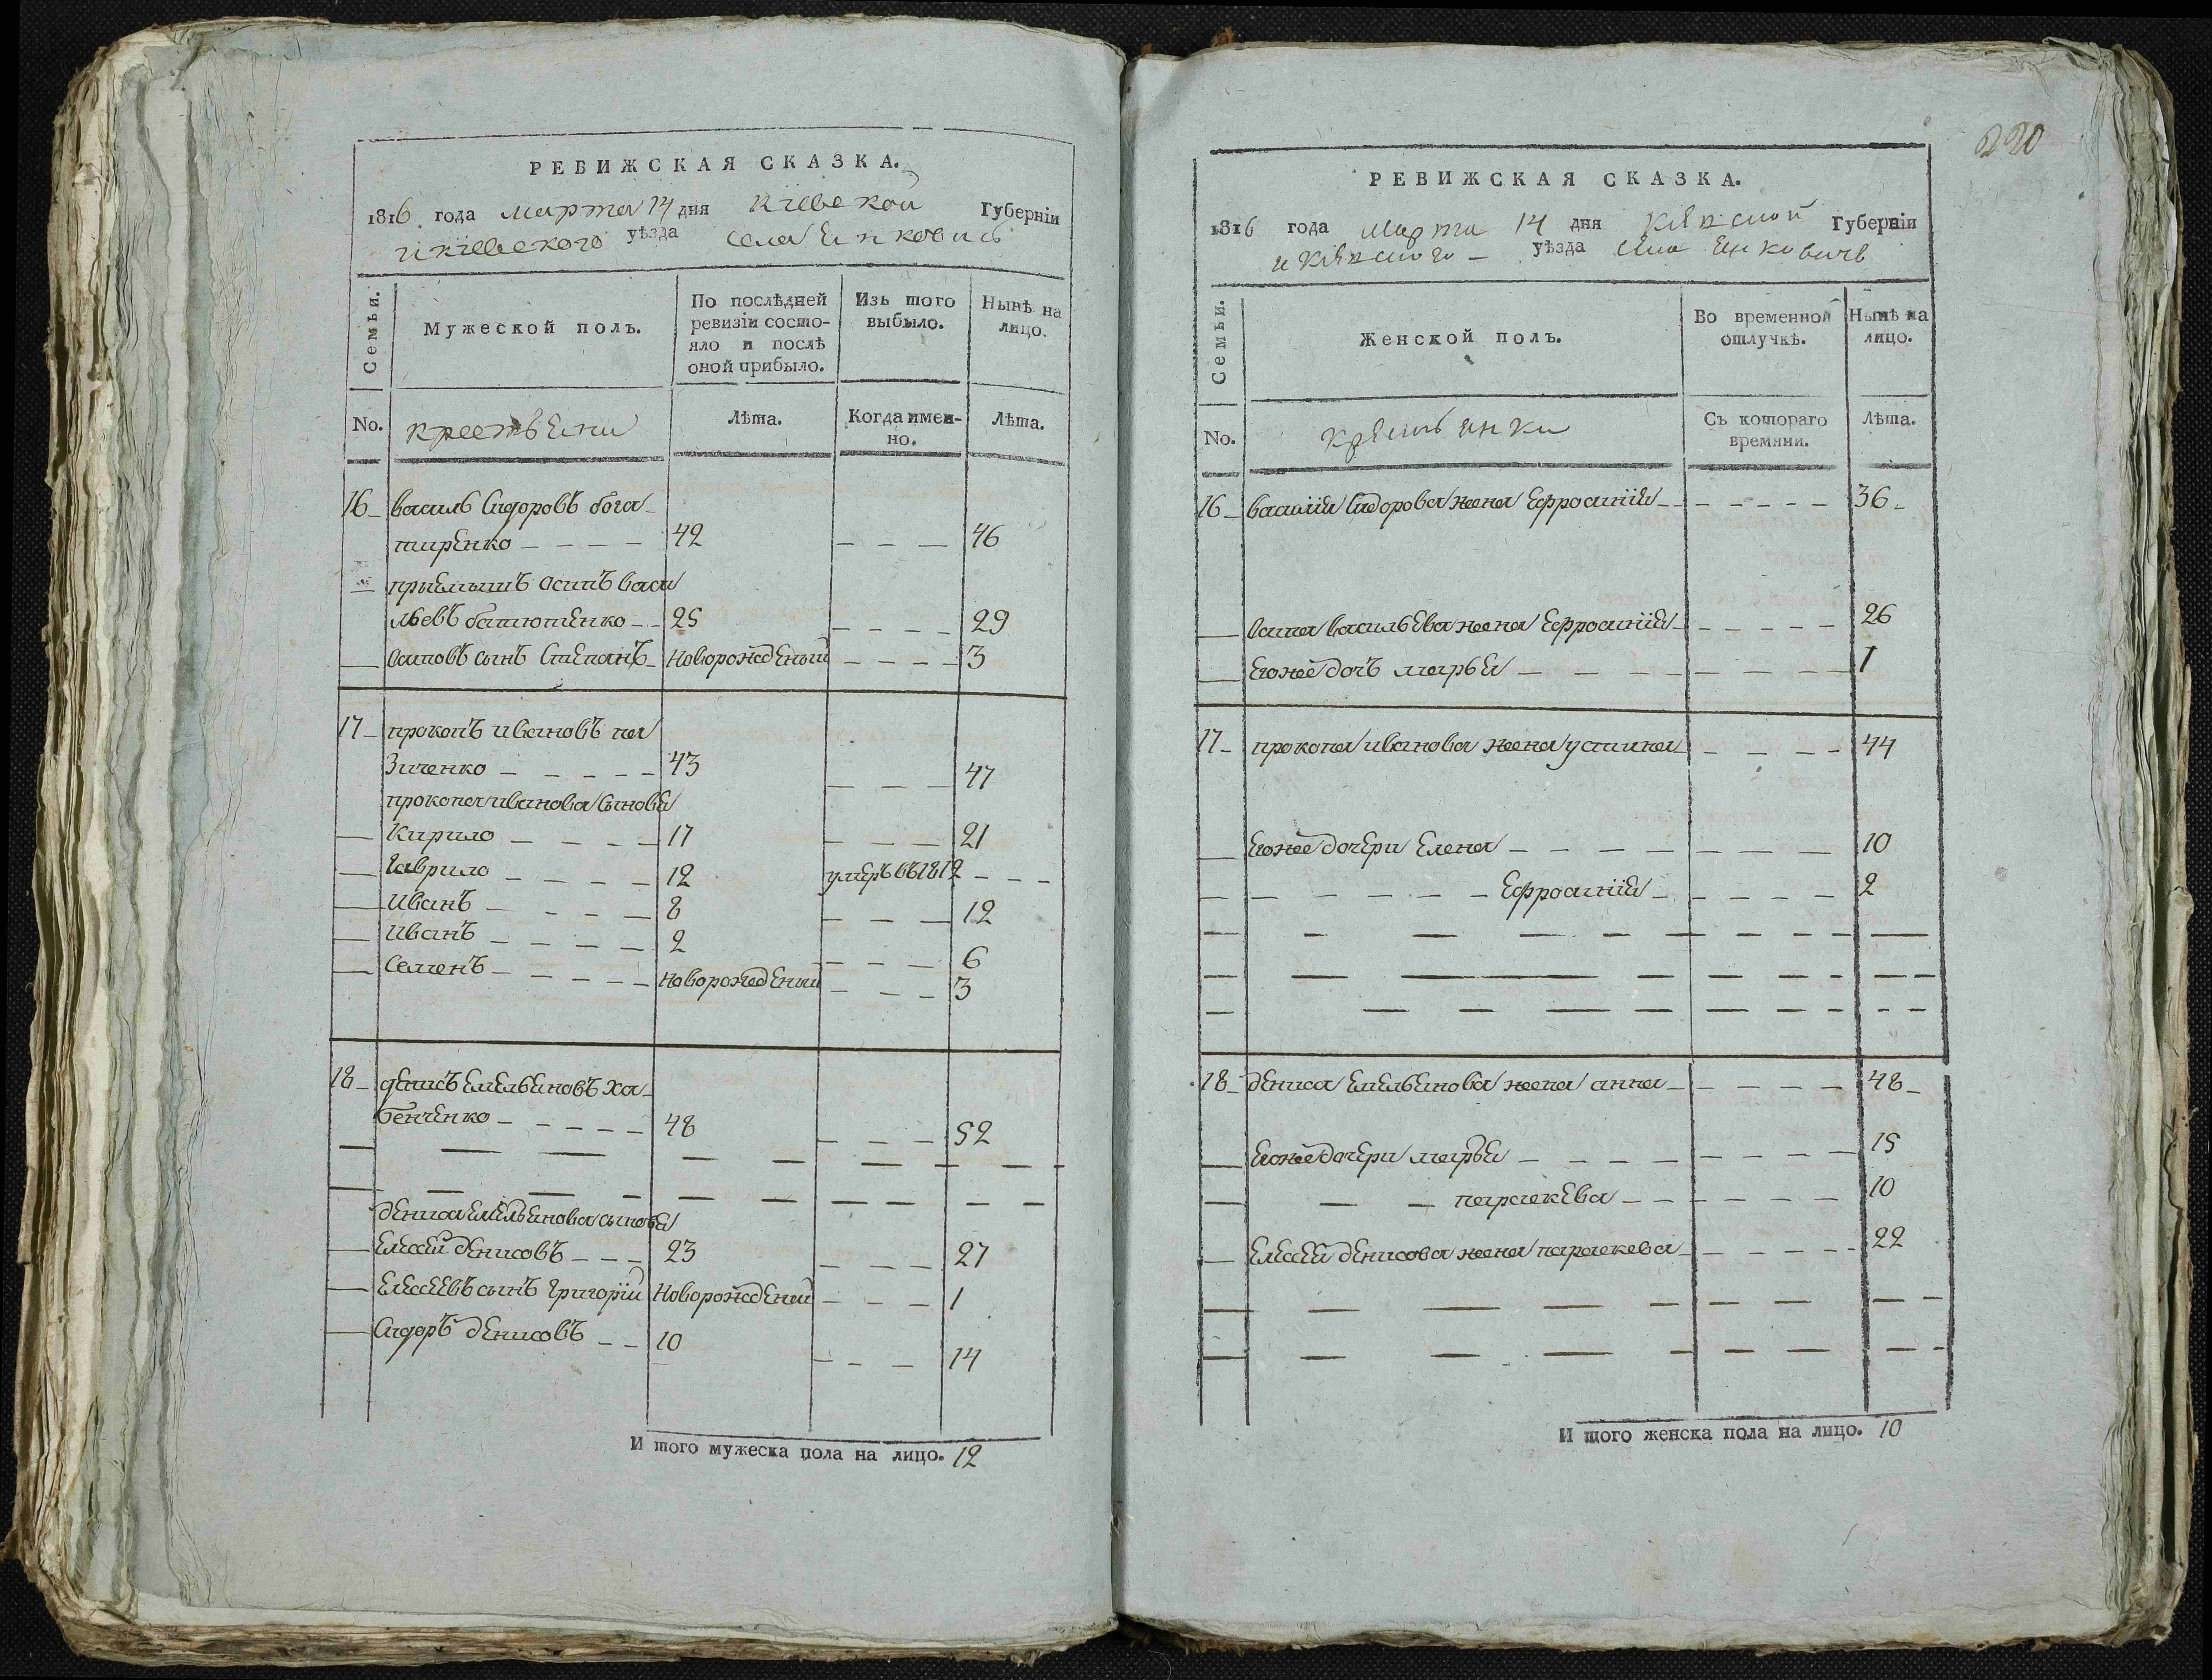 РЕВИЖСКАЯ СКАЗКА.
1816 года марта 14 дня Кіевской Губерніи
и Кіевского уѣзда села Янковичь
Семьи.
Мужеской полъ.
По послѣдней ревизіи состо-
яло и послѣ
оной прибыло.
Изъ того выбыло.
Нынѣ на лицо.
No.
крестьяни
Лѣта.
Когда имен-
но.
Лѣта.
16 василь Сидоровъ бога
тиренко 42 46
прыемышъ осипъ васи
льевъ батютенко 25 29
Осиповъ сынъ Степанъ Новорожденый 3
17 прокопъ ивановъ па
зиченко 43 47
прокопа иванова сыновя
Кирило 17 21
Гаврило 12 умеръ въ 1812
Иванъ 8 12
Иванъ 2 6
Семенъ новорожденый 3
18 денисъ емельяновъ ха
бенченко 48 52
дениса емельянова сыновя
елисей денисовъ 23 27
елисеевъ сынъ григорій Новорожденый 1
Сидоръ денисовъ 10 14
И того мужеска пола на лицо. 12
220
РЕВИЖСКАЯ СКАЗКА.
1816 года марта 14 дня Кіевской Губерніи
и Кіевского уѣзда села Янковичь
Семьи.
Женской полъ.
Во временной отлучкѣ.
Нынѣ на лицо.
No.
крестьянки
Съ котораго времяни.
Лѣта.
16 василія Сидорова жена Ефросинія 36
Осипа васильева жена Ефросинія 26
Егоже дочъ марья 1
17 прокопа иванова жена устина 44
Егоже дочери Елена 10
Ефросинія 2
18 дениса емельянова жена анна 48
Егоже дочери марья 15
параскева 10
Елисея денисова жена параскева 22
И того женска пола на лицо. 10